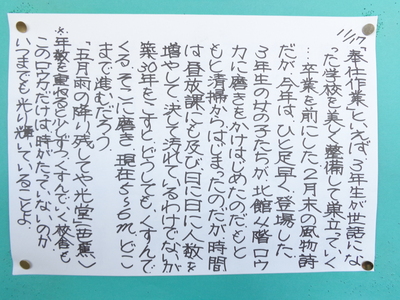 「奉仕作業」といえば、3年生が世話にな
った学校を美しく整備して巣立っていく
…卒業を前にした2月末の風物詩
だが、今年は、ひと足早く、登場した
3年生の女の子たちが、北館1階ロウ
カに磨きをかけはじめたのだ。もと
もと清掃からはじまったのだが、時間
は昼放課にも及び、日に日に人数を
増やして、決して汚れているわけでないが
築30年をこすと、どうしてもくすんで
くる。そこに磨き、現在5〜6m、どこ
まで進むだろう。
「五月雨の降り残してや光堂」(芭蕉)
*年数を重ねると くすんでいく校舎も
このロウカだけは、時がたっていないのか
いつまでも光り輝いていることよ。